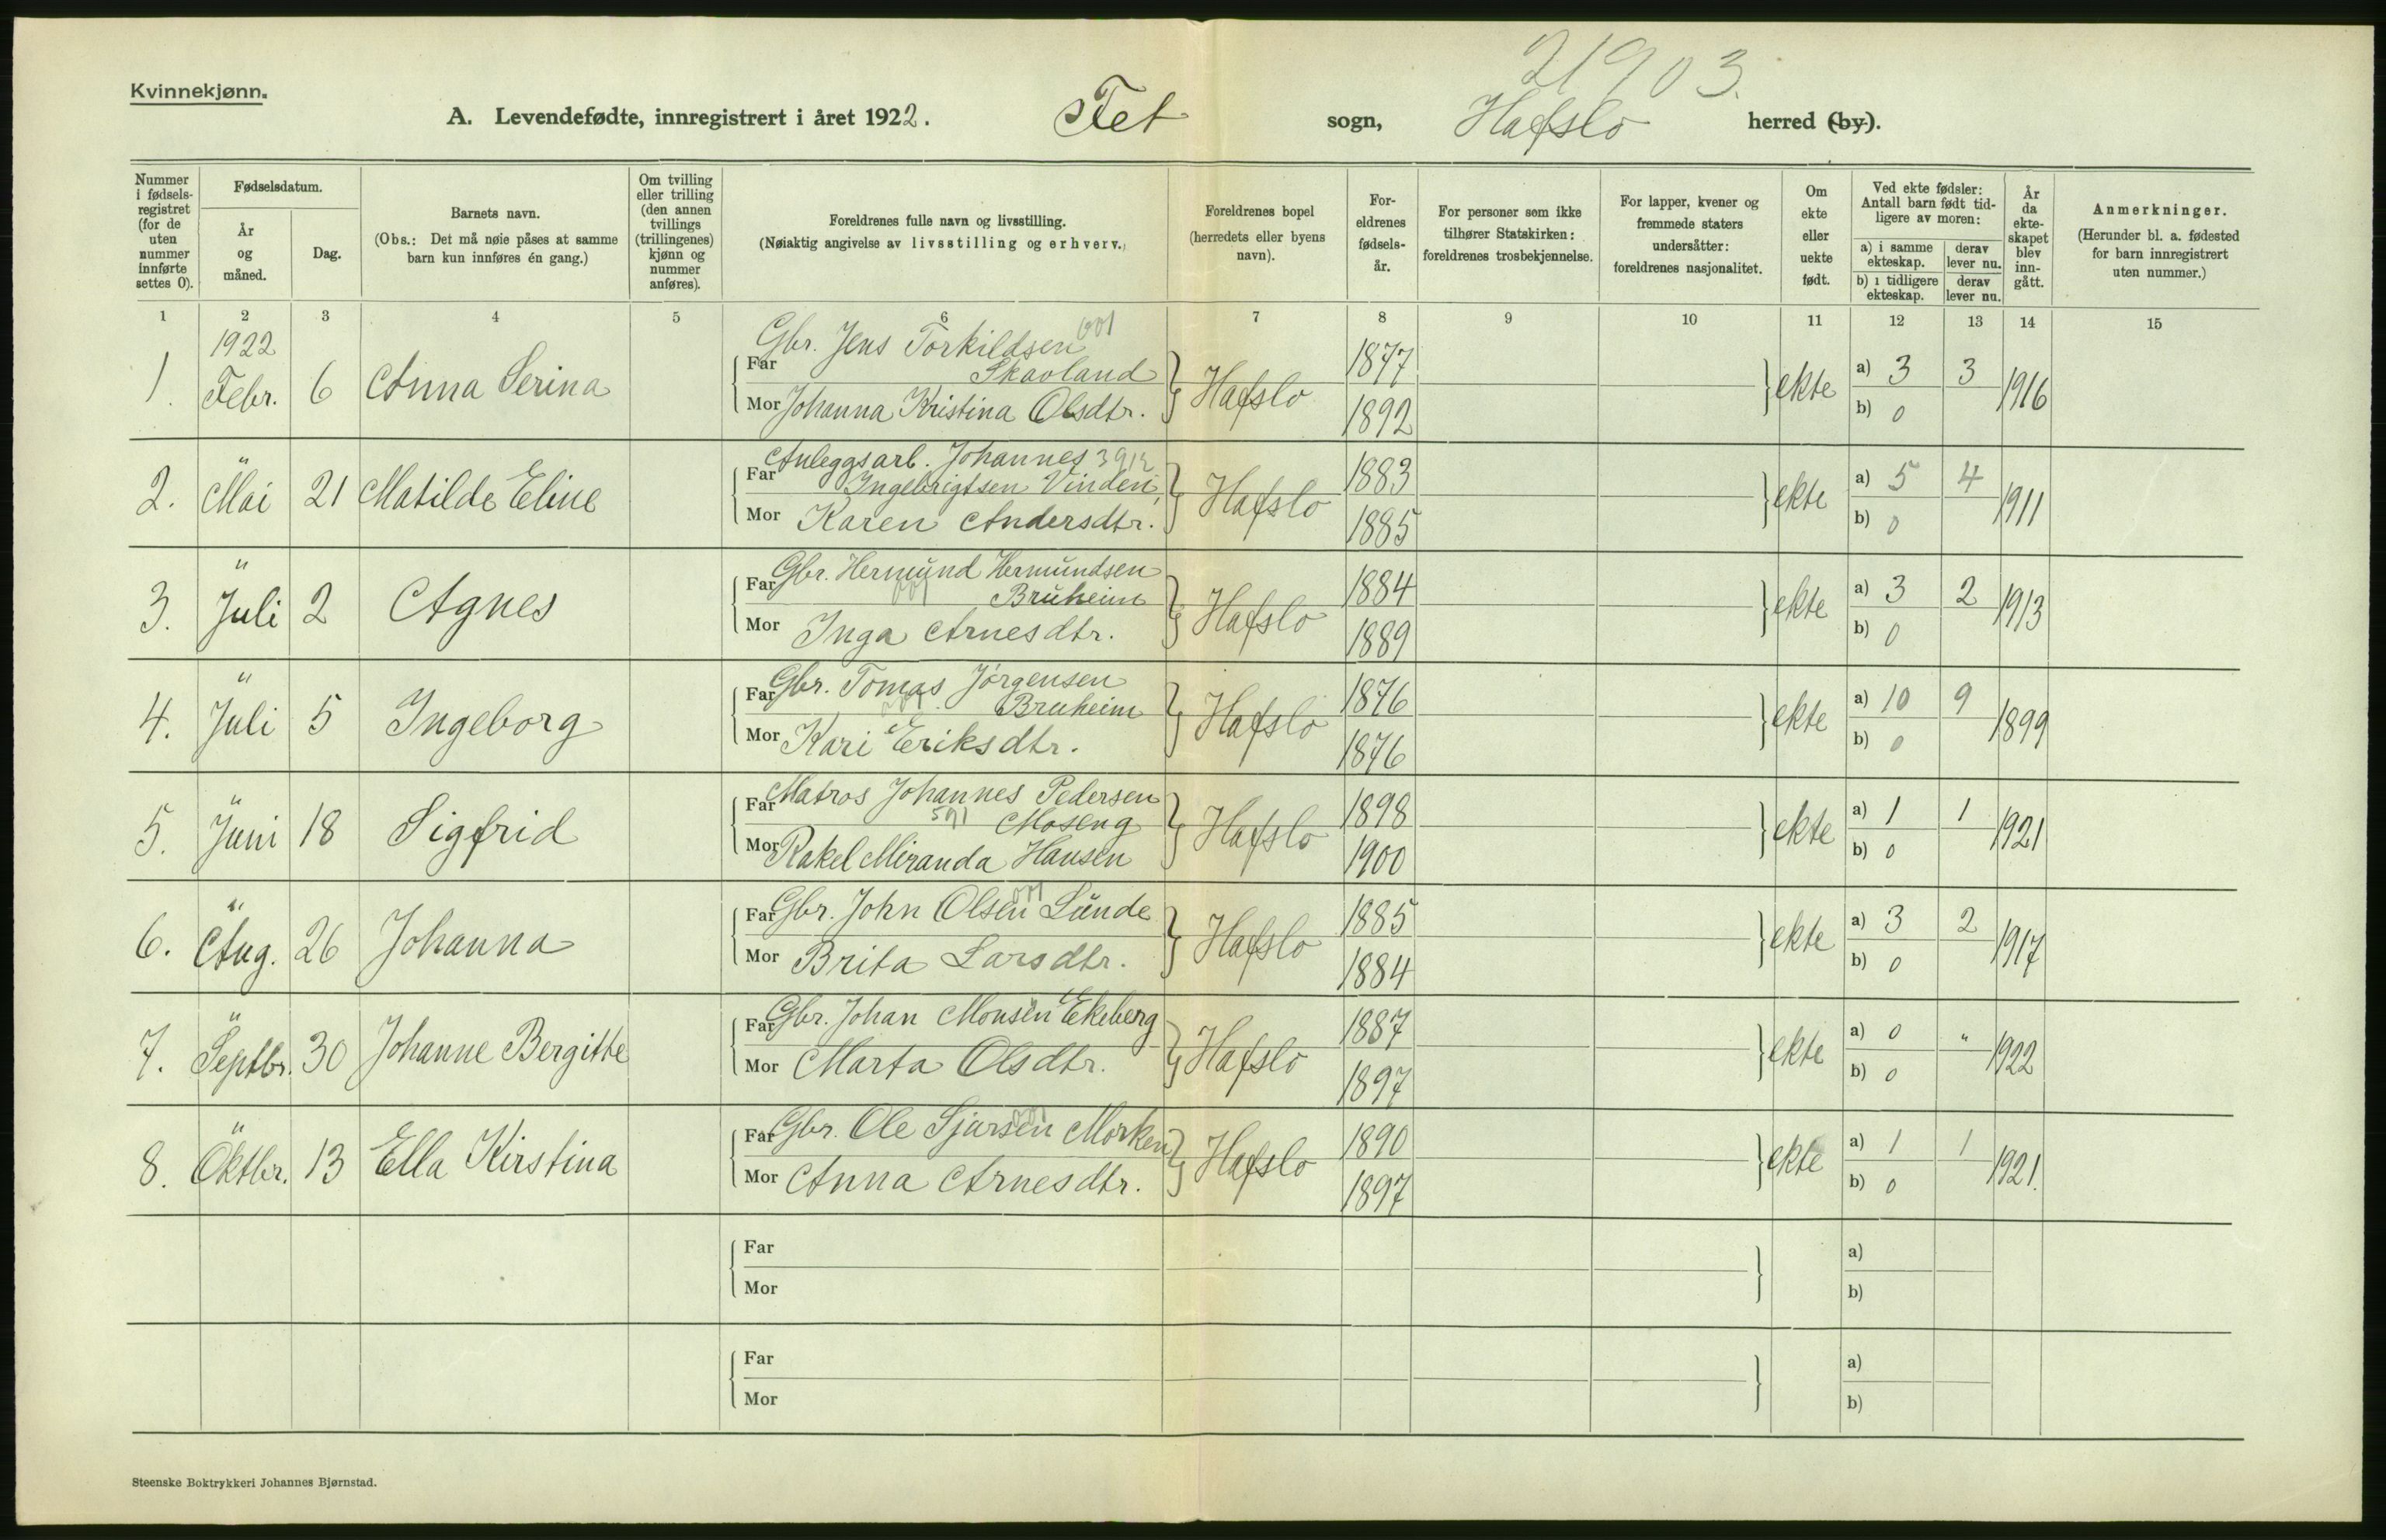 21903.
Kvinnekjønn.
A. Levendefødte, innregistrert i året 1922. Fet sogn, Hafslo herred (by).
Nummer i fødselsregistret (for de uten nummer innførte settes 0).
Fødselsdatum.
År og måned.
Dag.
Barnets navn.
(Obs.: Det må nøie påses at samme barn kun innføres én gang.)
Om tvilling eller trilling (den annen tvillings (trillingenes) kjønn og nummer anføres).
Foreldrenes fulle navn og livsstilling.
(Nøiaktig angivelse av livsstilling og erhverv.)
Foreldrenes bopel (herredets eller byens navn).
Foreldrenes fødselsår.
For personer som ikke tilhører Statskirken: foreldrenes trosbekjennelse.
For lapper, kvener og fremmede staters undersåtter: foreldrenes nasjonalitet.
Om ekte eller uekte født.
Ved ekte fødsler: Antall barn født tidligere av moren:
a) i samme ekteskap. derav lever nu.
b) i tidligere ekteskap. derav lever nu.
År da ekteskapet blev inngått.
Anmerkninger.
(Herunder bl. a. fødested for barn innregistrert uten nummer.)
1 2 3 4 5 6 7 8 9 10 11 12 13 14 15
1922
Far Gbr. Jens Torkildsen 1877
1. Febr. 6 Anna Serina Skaoland Hafslo ekte a) 3 3 1916
Mor Johanna Kristina Olsdtr. 1892 b) 0
" Far Anleggsarb. Johannes 3912 1883
2. Mai 21 Matilde Eline Ingebrigtsen Vinden, Hafslo ekte a) 5 4 1911
Mor Karen Andersdtr. 1885 b) 0
" Far Gbr. Hermund Hermundsen 1884
3. Juli 2 Agnes Bruheim Hafslo ekte a) 3 2 1913
Mor Inga Arnesdtr. 1889 b) 0
" Far Gbr. Tomas Jørgensen 1876
4. Juli 5 Ingeborg Bruheim Hafslo ekte a) 10 9 1899
Mor Kari Eriksdtr. 1876 b) 0
" Far Matros Johannes Pedersen 1898
5. Juni 18 Sigfrid 591 Moseng Hafslo ekte a) 1 1 1921
Mor Rakel Miranda Hansen 1900 b) 0
" Far Gbr. John Olsen Lunde 1885
6. Aug. 26 Johanna Hafslo ekte a) 3 2 1917
Mor Brita Larsdtr. 1884 b) 0
" Far Gbr. Johan Monsen Ekeberg 1887
7. Septbr. 30 Johanne Bergitte Hafslo ekte a) 0 " 1922
Mor Marta Olsdtr. 1897 b) 0
" Far Gbr. Ole Sjursen Morken 1890
8. Oktbr. 13 Ella Kirstina Hafslo ekte a) 1 1 1921.
Mor Anna Arnesdtr. 1897 b) 0
Far a)
Mor b)
Far a)
Mor b)
Steenske Boktrykkeri Johannes Bjørnstad.